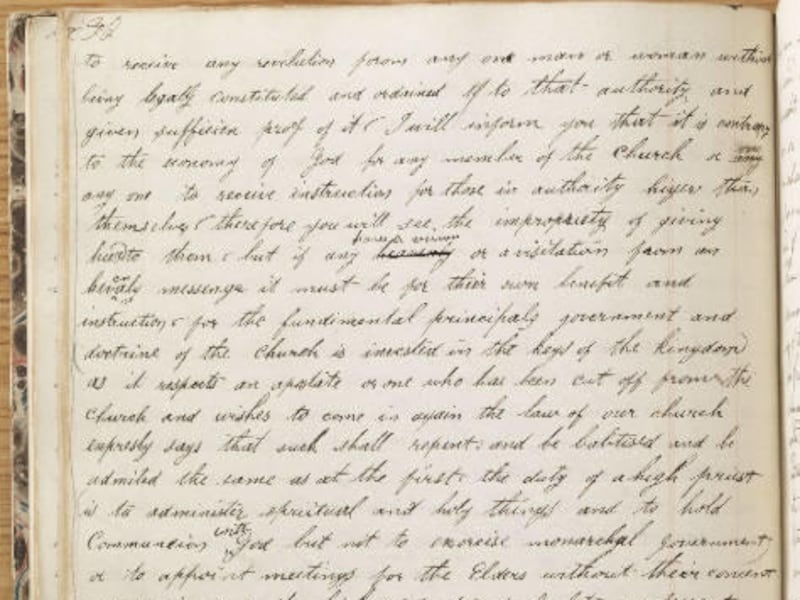 32
to receive any revelution from any one man or woman without
being legaly constituted and ordained to that authority and
given suffisien proof of it I will inform you that it is contrary
to the economy of God for any member of the Church or any
any one to receive instruction for those in authority higer than
themselves therefore you will see the impropriety of giving
heed to them but if any have a vision or a visitation from an
hevenly messenge it must be for their own benefit and
instruction for the fundimental principals government and
doctrine of the Church is invested in the keys of the kingdom
as it respects an apostate or one who has been cut off from the
Church and wishes to come in again the law of our church
expressly says that such shall repent and be babtised and be
admited the same as at the first the duty of a high priest
is to administer spiritual and holy things and to hold
Communion with God but not to exorcise monarchal government
or to appoint meetings for the Elders without their consent